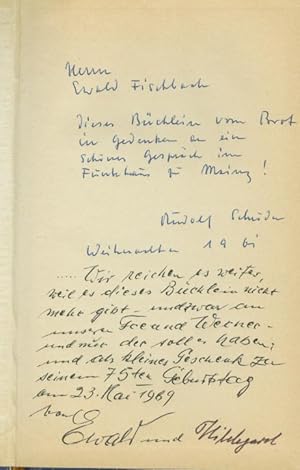 Herrn
Ewald Fischbach
dieses Büchlein vom Brot
in Gedenken an ein
schönes Gespräch im
Funkhaus zu Mainz!
Rudolf
Weihnachten 19
..... Wir reichen es weiter,
weil es dieses Büchlein nicht
mehr gibt – und zwar an
unseren Freund Werner –
und nur der soll es haben;
und als kleines Geschenk zu
seinem 75ten Geburtstag
am 23. Mai 1989
von
Ewald und Hildegard